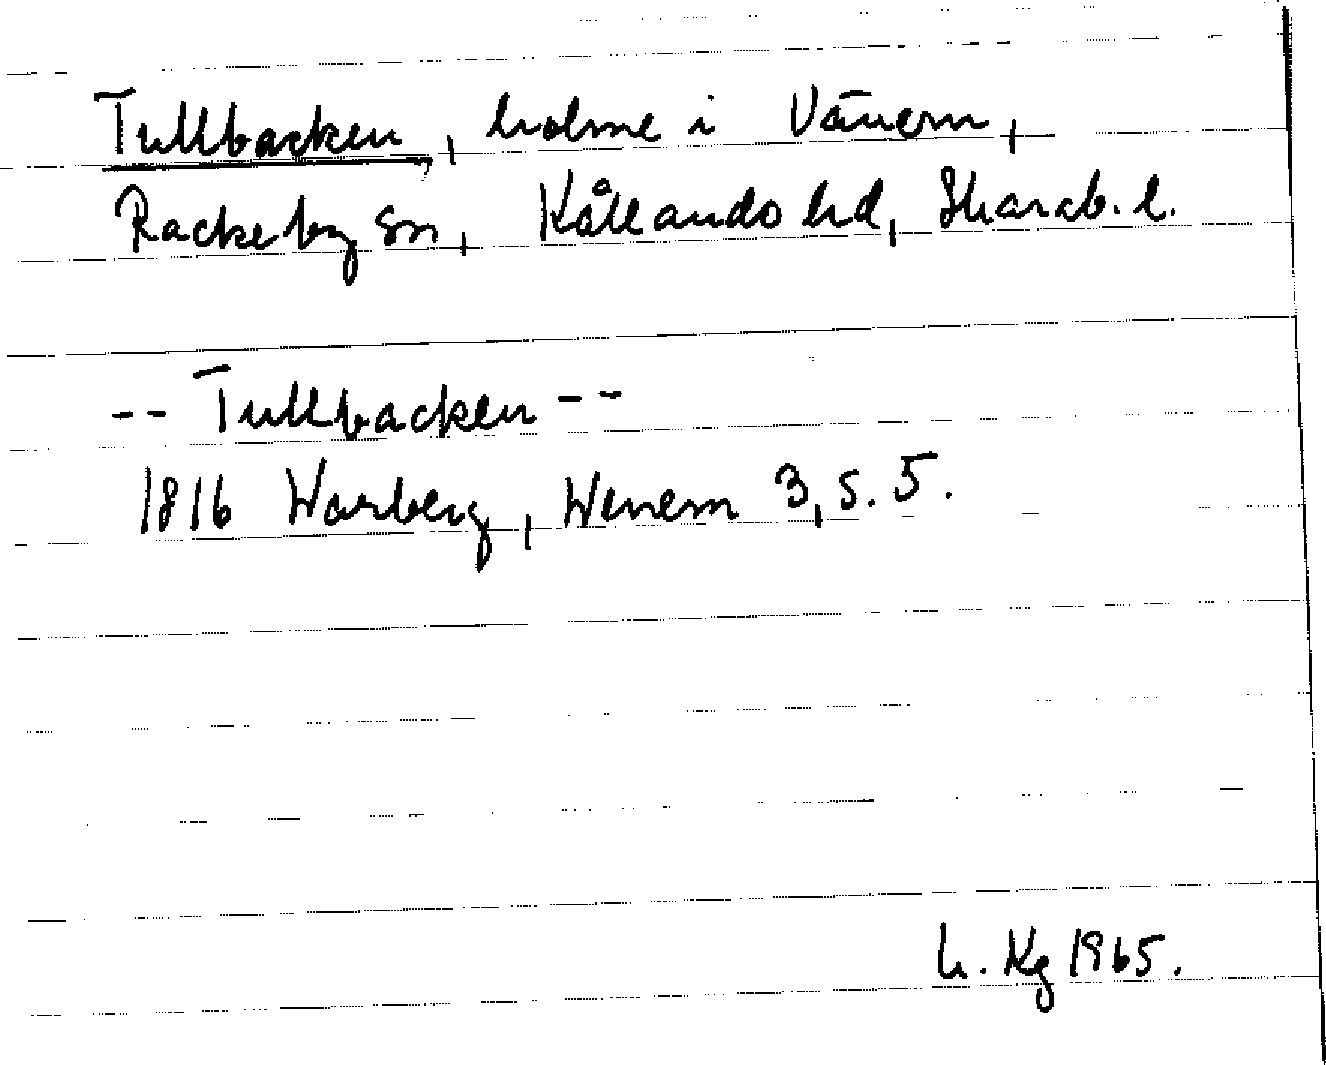 Tullbacken, holme i Vänern,
Rackeby sn, Kållands hd, Skarab. l.
-- Tullbacken --
1816 Warberg, Wenern 3, s. 5.
1965.